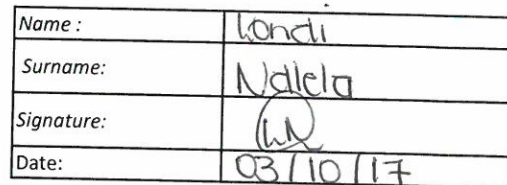 Name : Londi
Surname: Ndlela
Signature: LN
Date: 03/10/17